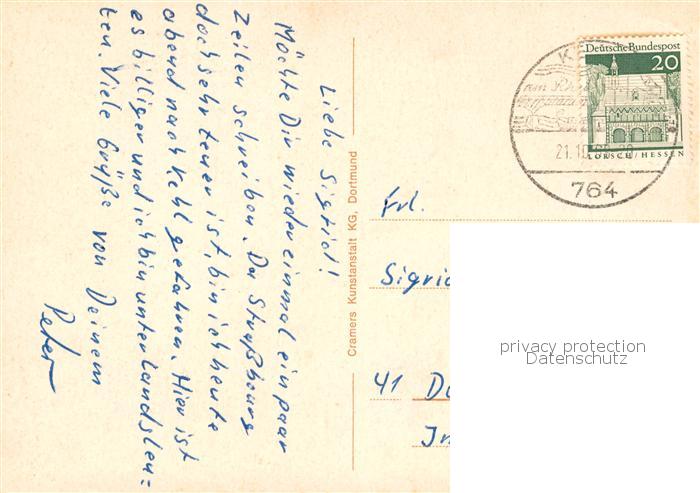 Liebe Sigrid!
Möchte Dir wieder einmal ein paar
Zeilen schreiben. Da Straßbourg
doch sehr teuer ist, bin ich heute
abend nach Kehl gefahren. Hier ist
es billiger und ich bin unter Landsleu=
ten. Viele Grüße von Deinem
Peter
Cramers Kunstanstalt KG, Dortmund
Deutsche Bundespost
20
LORSCH / HESSEN
21.10.
764
Frl.
Sigrid
41
privacy protection
Datenschutz